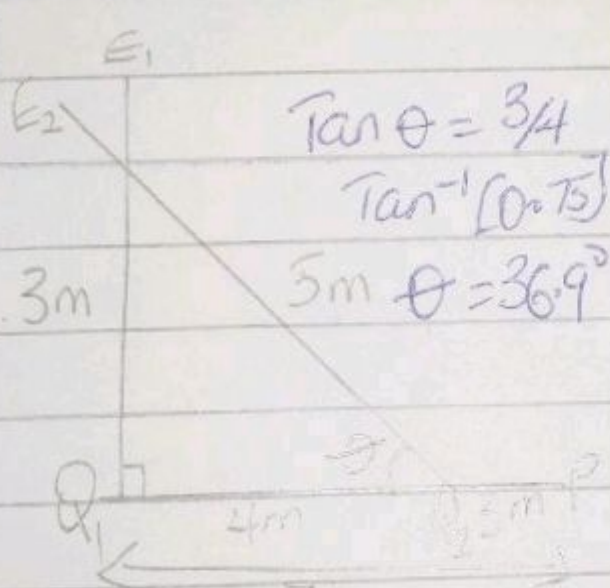 E₁
E₂
Tan θ = 3/4
Tan⁻¹ (0.75)
3m
5m θ = 36.9°
θ
Q₁
4m
Q₂
3m
P